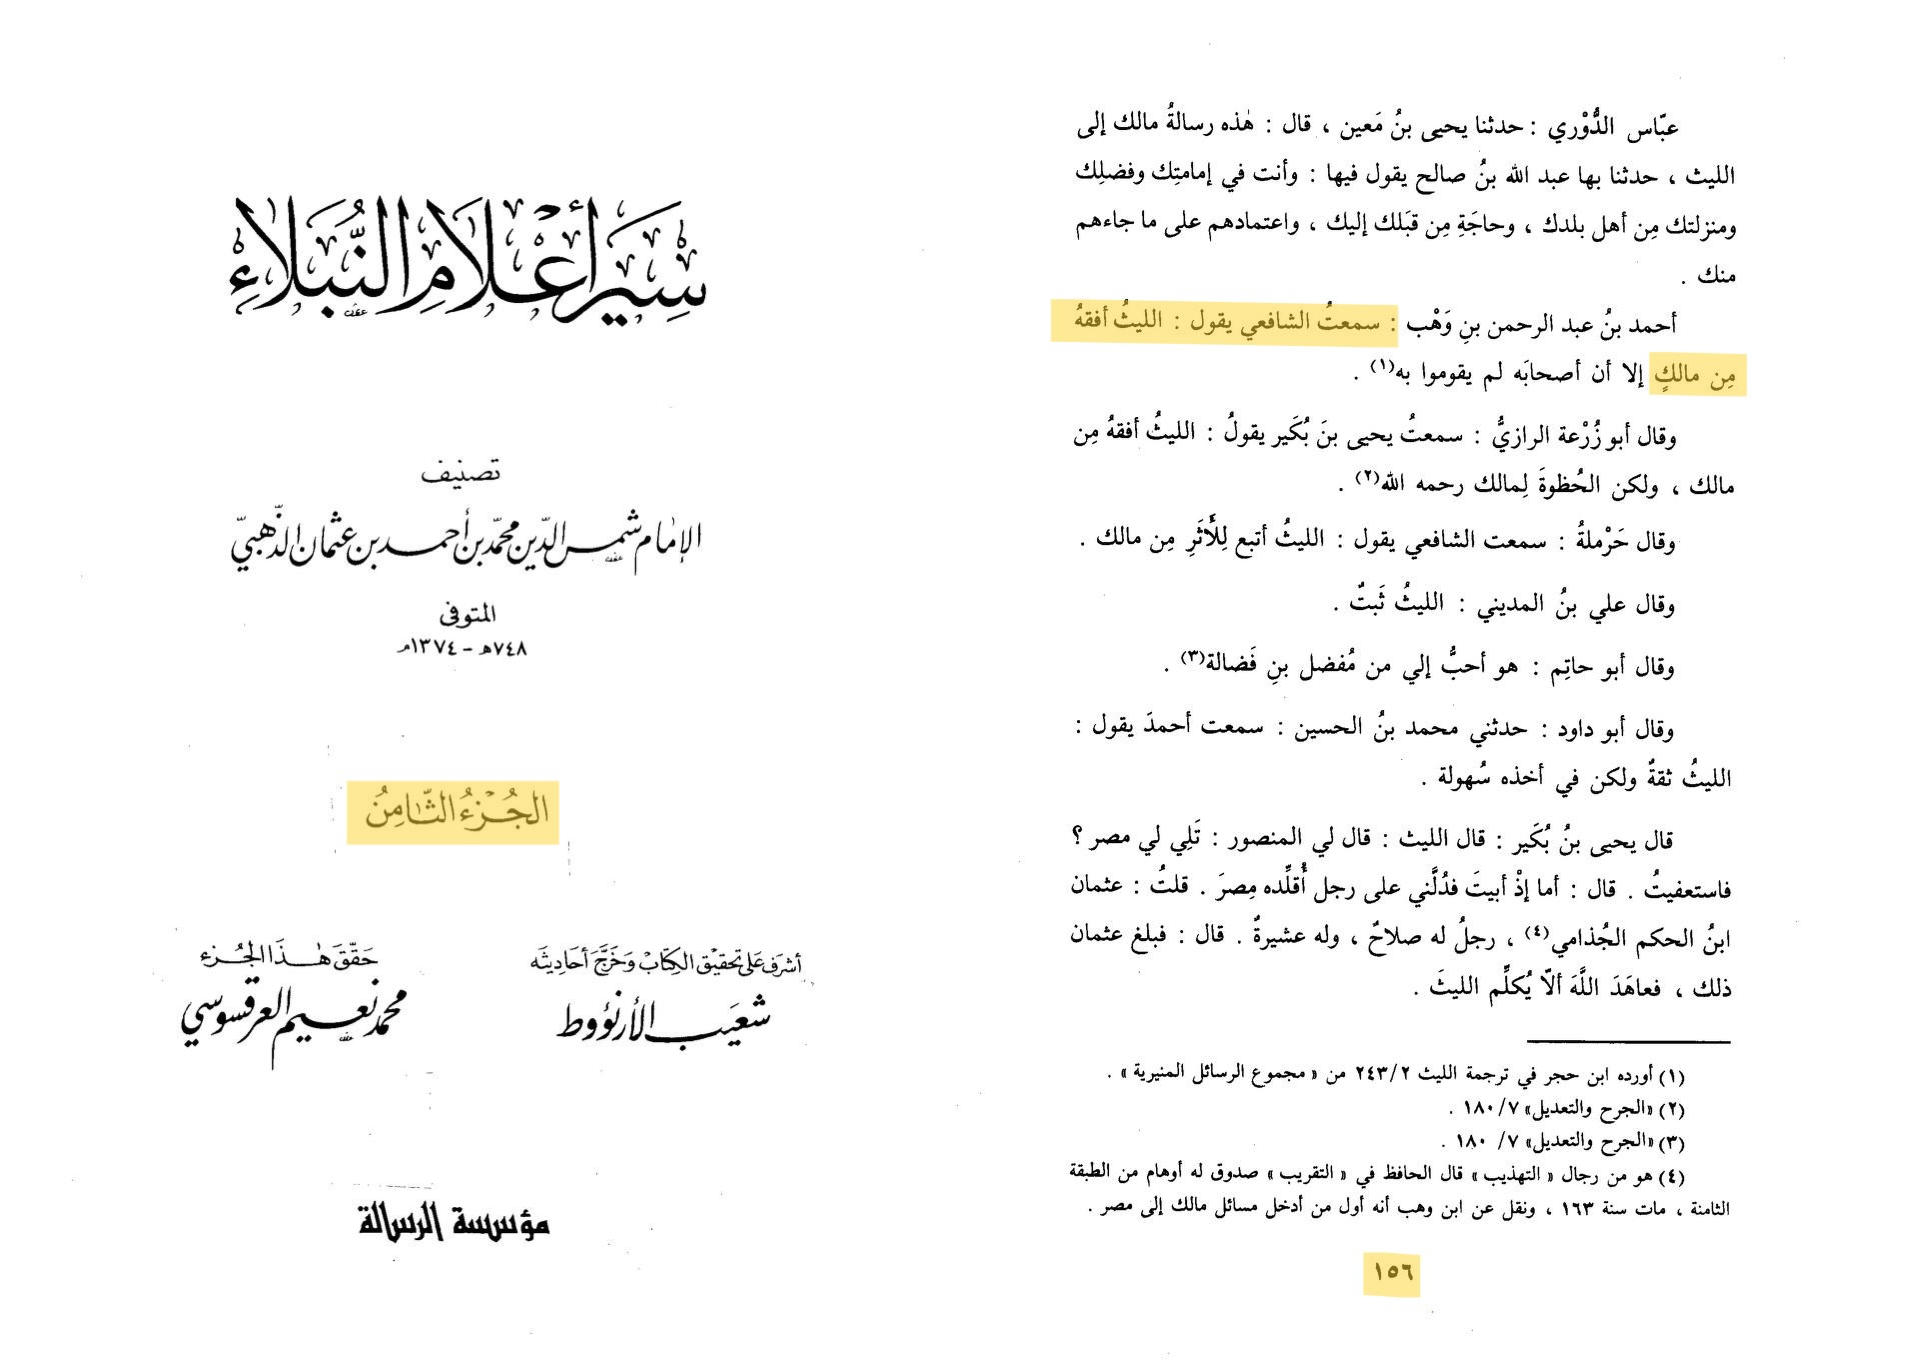 سِيَرُ أَعْلَامِ النُّبَلَاءِ
تصنيف
الإمام شمس الدّين محمّد بن أحمد بن عثمان الذّهبيّ
المتوفى
٧٤٨هـ - ١٣٧٤م
الجُزءُ الثّامِنُ
أشرَف عَلى تحقيق الكِتَاب وَخَرَّجَ أحَاديثَه
شعَيب الأرنؤوط
حَقّقَ هٰذَا الجُزء
محمّد نعيم العرقسوسي
مؤسسة الرسالة
عبّاس الدُّوْري : حدثنا يحيى بنُ مَعين ، قال : هٰذه رسالةُ مالك إلى
الليث ، حدثنا بها عبد الله بنُ صالح يقول فيها : وأنت في إمامتِك وفضلِك
ومنزلتك مِن أهل بلدك ، وحاجَةِ مِن قبَلك إليك ، واعتمادهم على ما جاءهم
منك .
أحمد بنُ عبد الرحمن بنِ وَهْب : سمعتُ الشافعي يقول : الليثُ أفقهُ
مِن مالكٍ إلا أن أصحابَه لم يقوموا به(١) .
وقال أبو زُرْعة الرازيُّ : سمعتُ يحيى بنَ بُكَير يقولُ : الليثُ أفقهُ مِن
مالك ، ولكن الحُظوةَ لِمالك رحمه الله(٢) .
وقال حَرْملةُ : سمعت الشافعي يقول : الليثُ أتبع لِلْأَثَرِ مِن مالك .
وقال علي بنُ المديني : الليثُ ثَبتٌ .
وقال أبو حاتِم : هو أحبُّ إلي من مُفضل بنِ فَضالة(٣) .
وقال أبو داود : حدثني محمد بنُ الحسين : سمعت أحمدَ يقول :
الليثُ ثقةٌ ولكن في أخذه سُهولة .
قال يحيى بنُ بُكَير : قال الليث : قال لي المنصور : تَلِي لي مصر ؟
فاستعفيتُ . قال : أما إذْ أبيتَ فدُلَّني على رجل أُقلِّده مِصرَ . قلتُ : عثمان
ابنُ الحكم الجُذامي(٤) ، رجلُ له صلاحٌ ، وله عشيرةٌ . قال : فبلغ عثمان
ذلك ، فعاهَدَ اللَّهَ ألاّ يُكلِّم الليثَ .
(١) أورده ابن حجر في ترجمة الليث ٢٤٣/٢ من « مجموع الرسائل المنيرية » .
(٢) «الجرح والتعديل» ١٨٠/٧ .
(٣) «الجرح والتعديل» ٧/ ١٨٠ .
(٤) هو من رجال « التهذيب » قال الحافظ في « التقريب » صدوق له أوهام من الطبقة
الثامنة ، مات سنة ١٦٣ ، ونقل عن ابن وهب أنه أول من أدخل مسائل مالك إلى مصر .
١٥٦